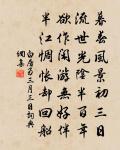 暮春風景初三日
流世光陰半百年
欲作閑遊無好伴
半江惆悵却回船
白居易三月三日詞典
網集